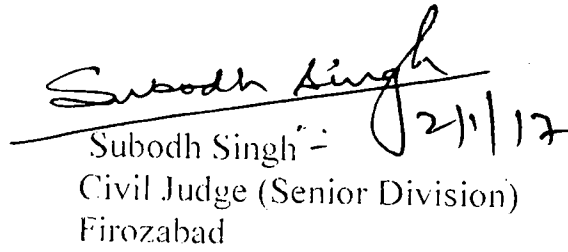 Subodh Singh
2/1/17
Subodh Singh
Civil Judge (Senior Division)
Firozabad